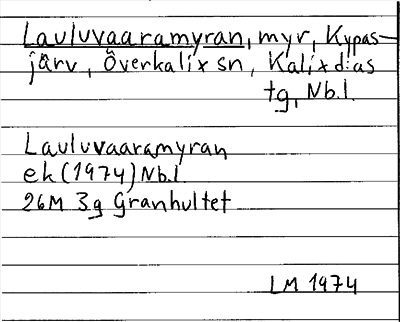 Lauluvaaramyran, myr, Kypas-
järv, Överkalix sn, Kalix d:as
tg, Nb.l.
Lauluvaaramyran
ek (1974) Nb.l.
26M 3g Granhultet
LM 1974